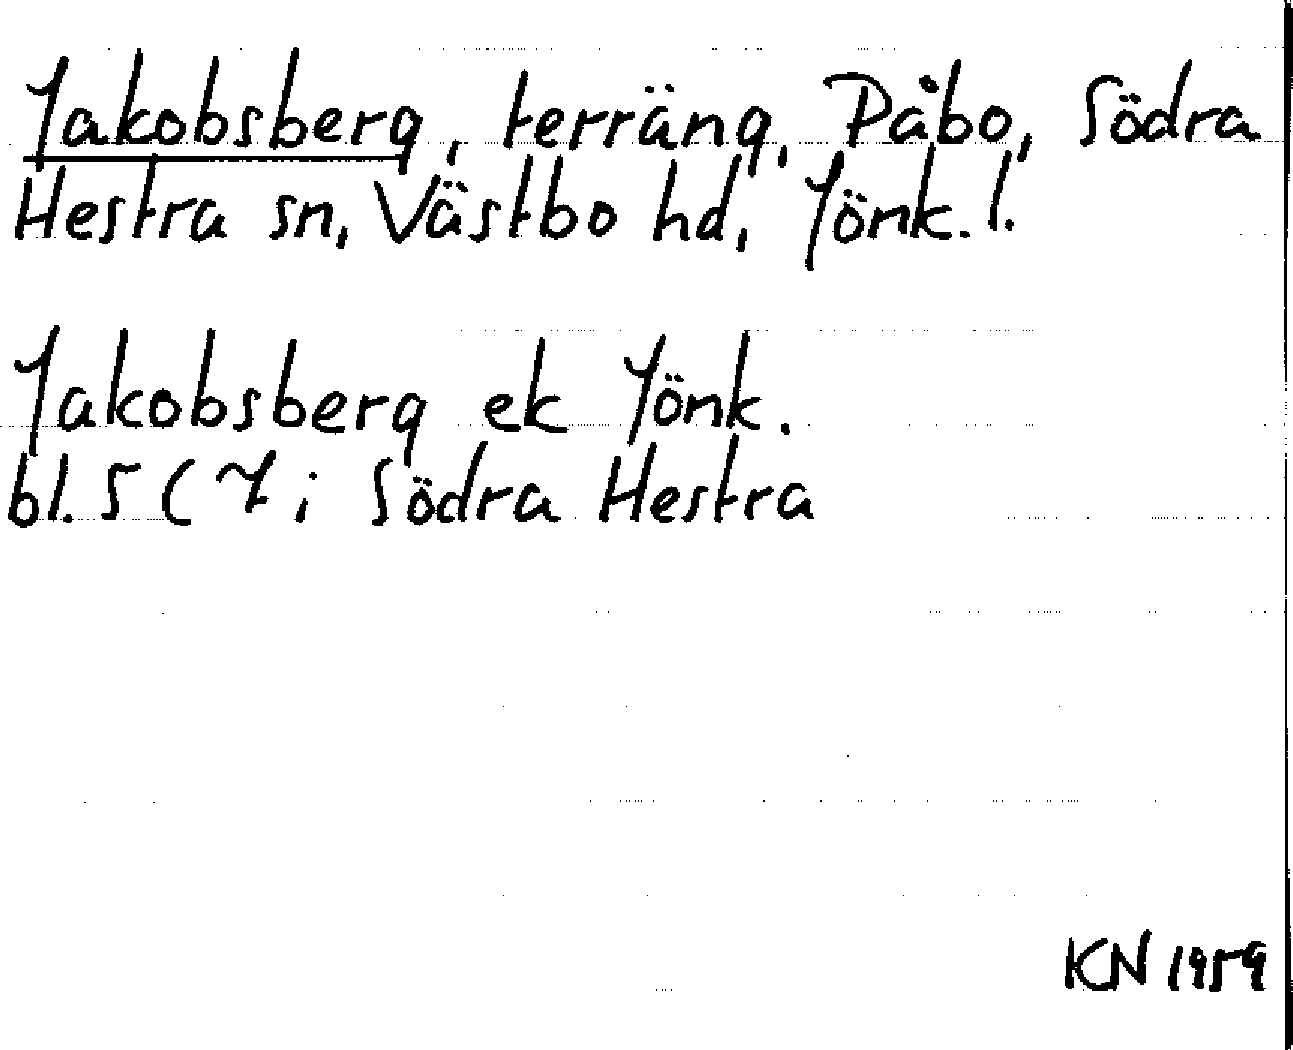 Jakobsberg, terräng, Påbo, Södra
Hestra sn, Västbo hd, Jönk. l.
Jakobsberg ek Jönk.
bl. 5 (7 i Södra Hestra
KN 1959